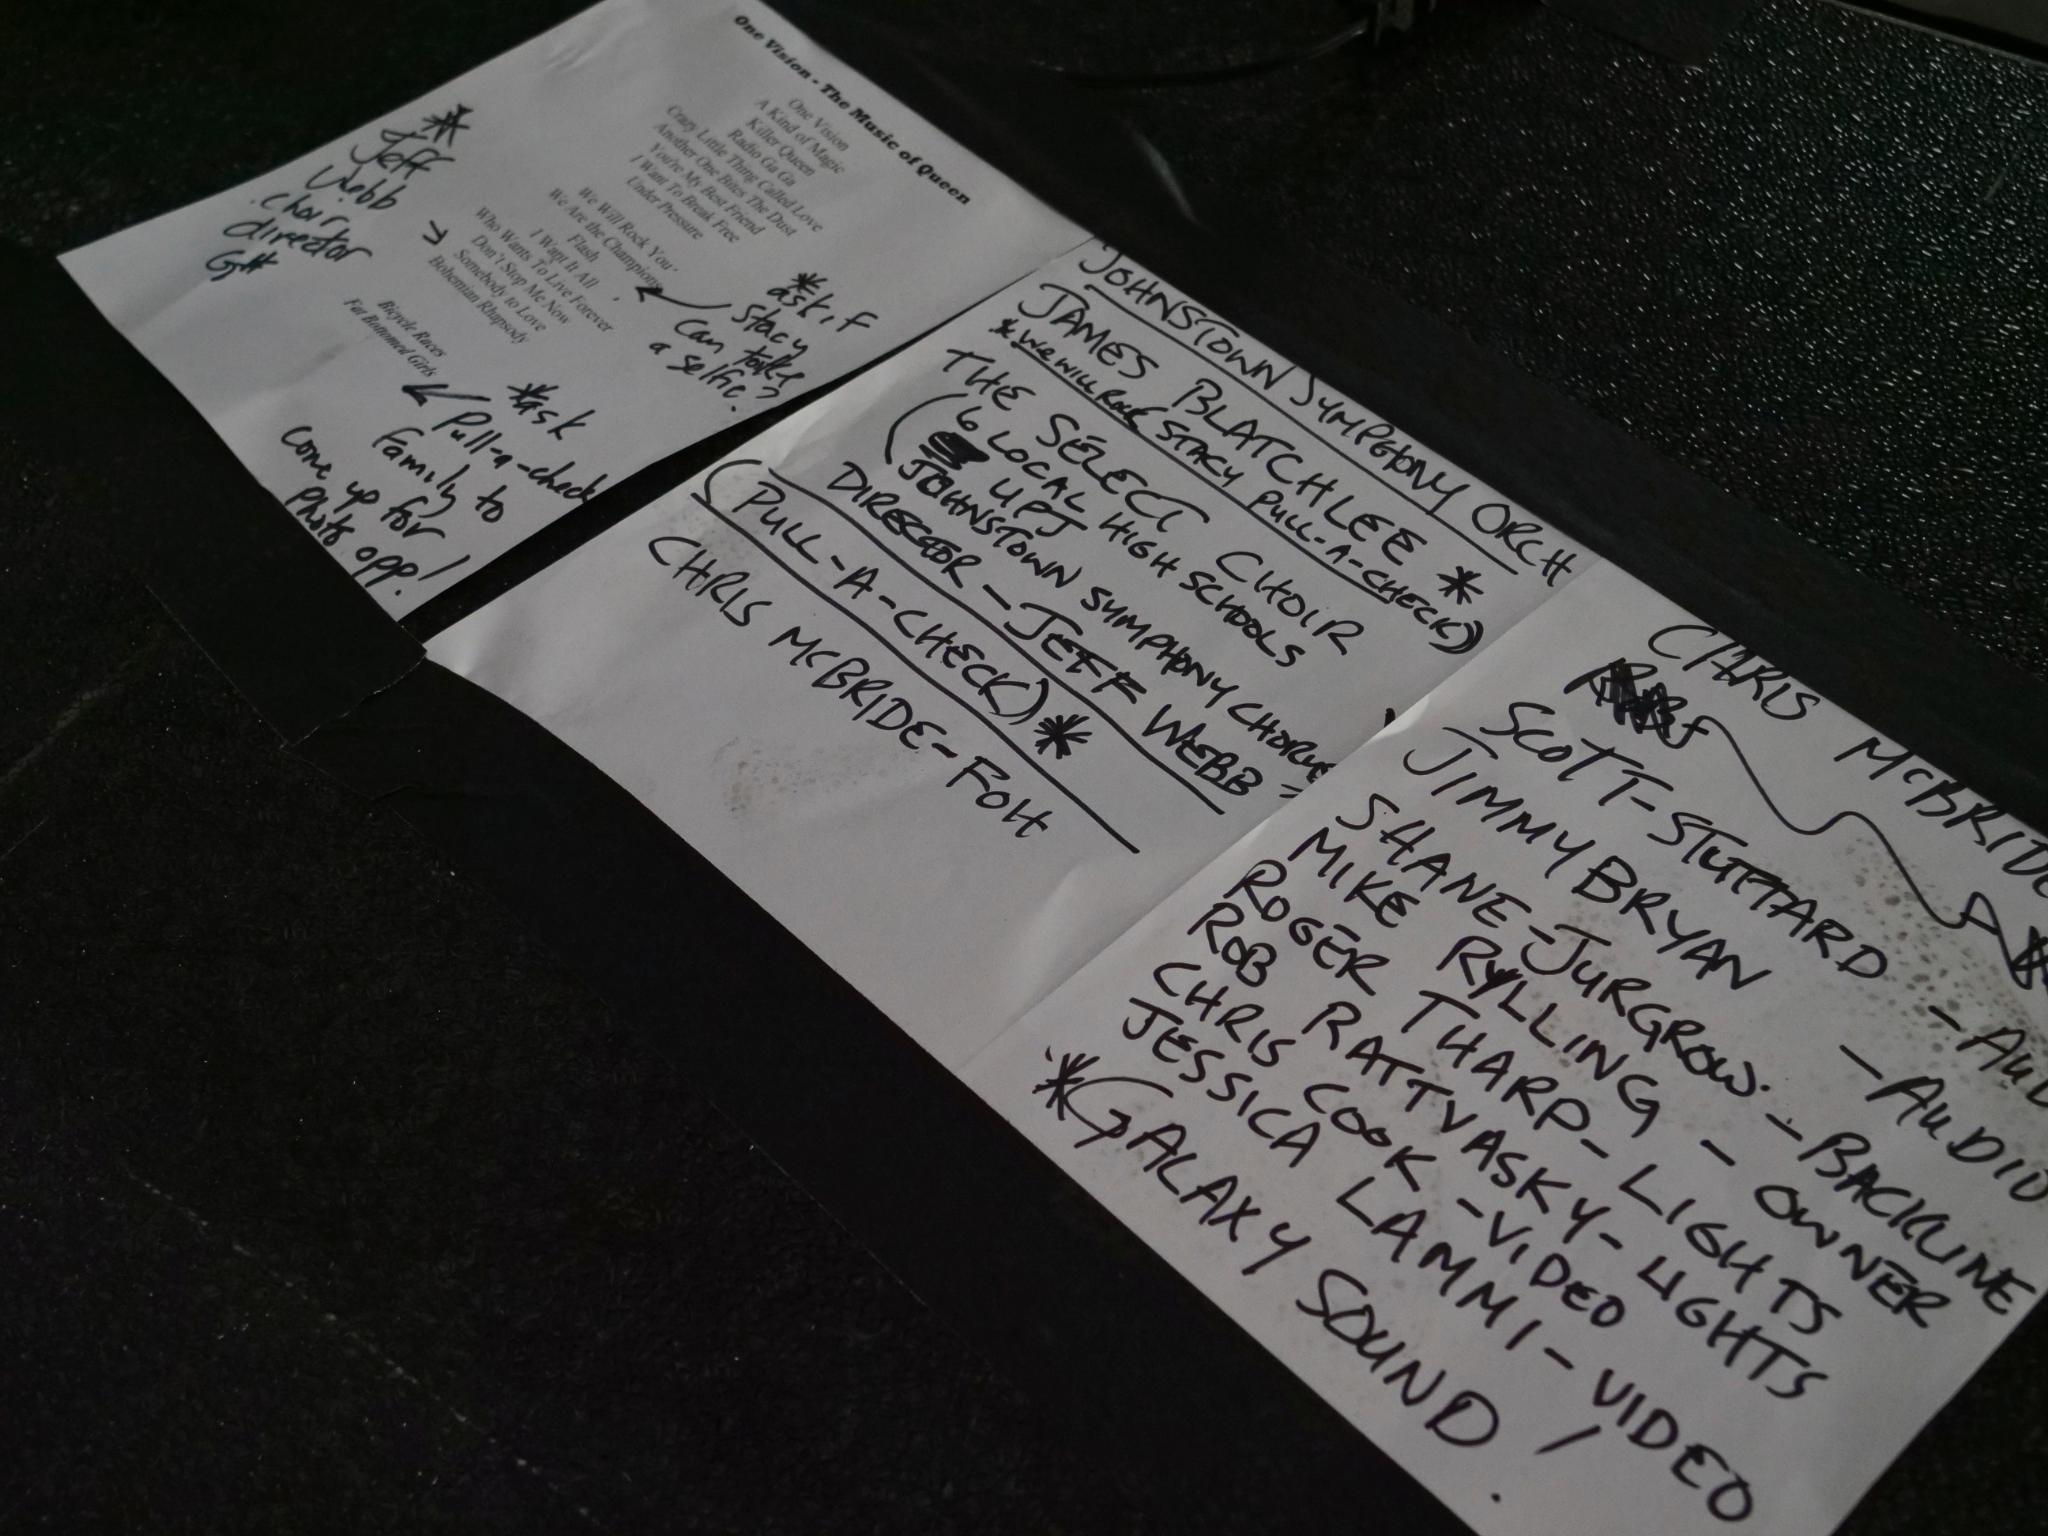 One Vision - The Music of Queen
One Vision
A Kind of Magic
Killer Queen
Radio Ga Ga
Crazy Little Thing Called Love
Another One Bites The Dust
You're My Best Friend
I Want To Break Free
Under Pressure
We Will Rock You
We Are the Champions
Flash
I Want It All
Who Wants To Live Forever
Don't Stop Me Now
Somebody to Love
Bohemian Rhapsody
Bicycle Races
Fat Bottomed Girls
*
Jeff
Webb
choir
director
G#
*
ask if
Stacy
Can take
a selfie?
*ask
Pull-a-check
Family to
come up for
photo opp!
JOHNSTOWN SYMPHONY ORCH
JAMES BLATCHLEE *
* WE WILL ROCK STACY PULL-A-CHECK))
THE SELECT CHOIR
(6 LOCAL HIGH SCHOOLS
UPJ
JOHNSTOWN SYMPHONY CHORUS
DIRECTOR - JEFF WEBB
(PULL-A-CHECK) *
CHRIS MCBRIDE - FOH
CHRIS MCBRIDE
SCOTT-STUTTARD - AUD
JIMMY BRYAN - AUDIO
SHANE-JURGROW. - BACKLINE
MIKE RYLLING - OWNER
ROGER THARP - LIGHTS
ROB RATTVASKY - LIGHTS
CHRIS COOK - VIDEO
JESSICA LAMMI - VIDEO
*GALAXY SOUND!